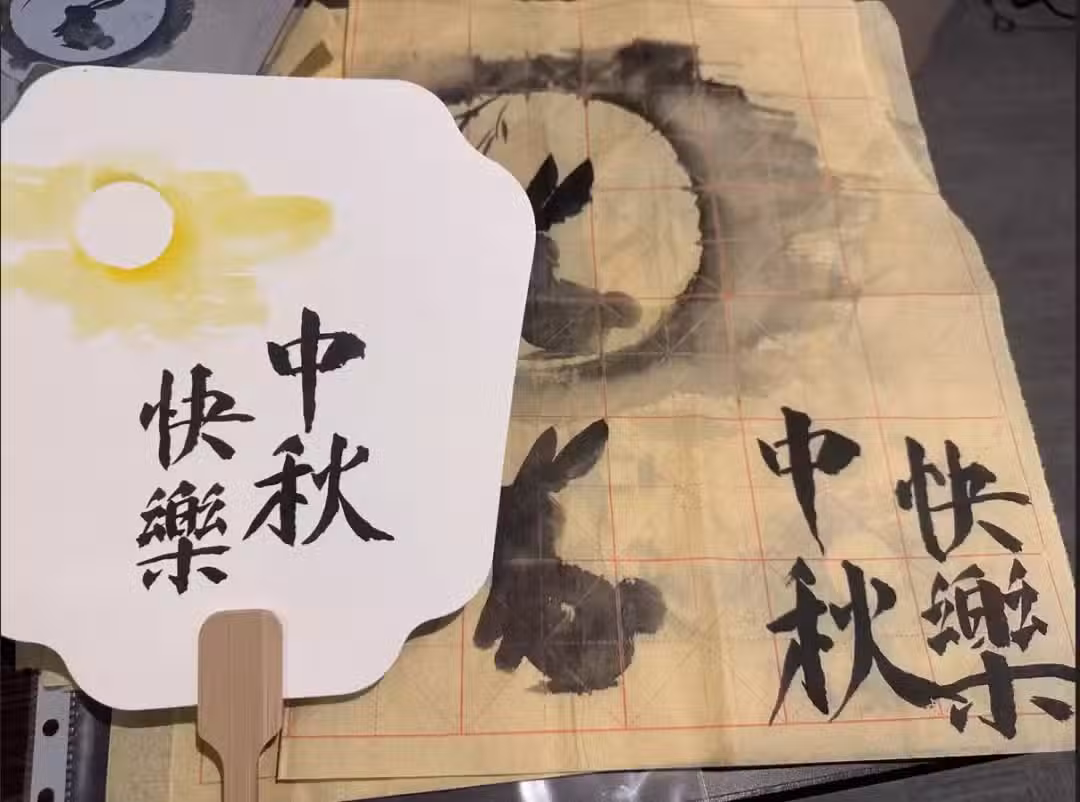 中秋
快樂
中秋
快樂